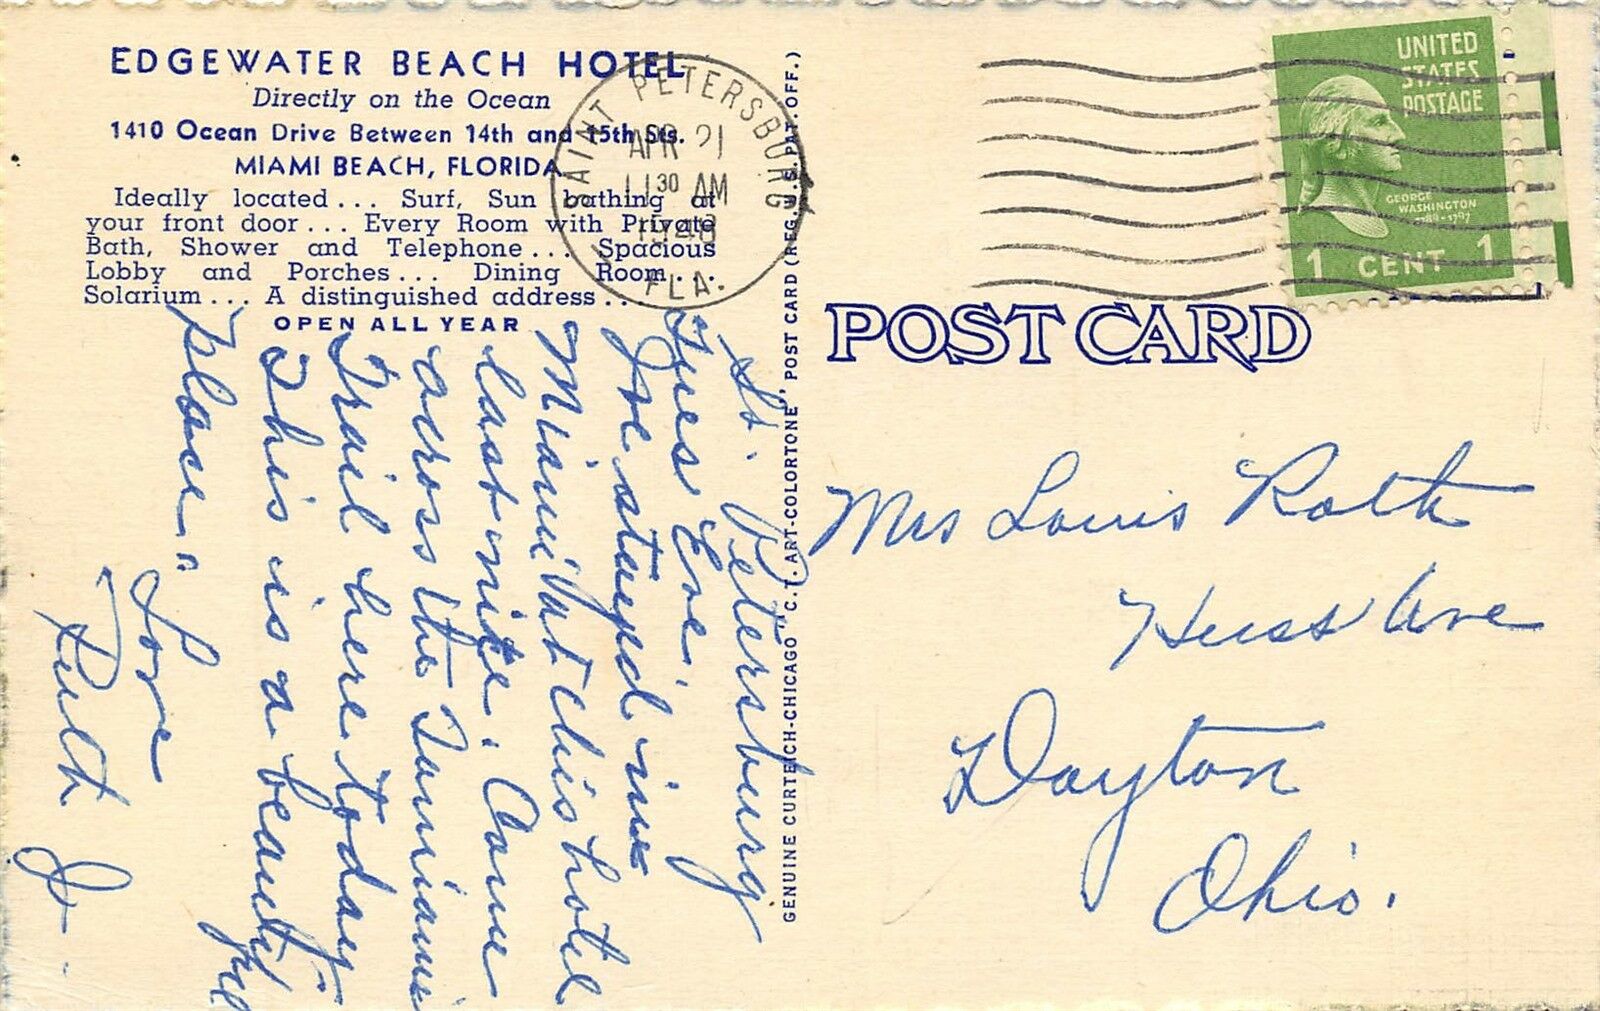 EDGEWATER BEACH HOTEL
Directly on the Ocean
1410 Ocean Drive Between 14th and 15th Sts.
MIAMI BEACH, FLORIDA
Ideally located... Surf, Sun bathing at
your front door... Every Room with Private
Bath, Shower and Telephone... Spacious
Lobby and Porches... Dining Room...
Solarium... A distinguished address...
OPEN ALL YEAR
St. Petersburg
Tues Eve.
We stayed in
Miami at this hotel
last nite. Came
across the Tamiami
Trail here today.
This is a beautiful
place.
Love
Ruth J.
GENUINE CURTEICH-CHICAGO "C.T. ART-COLORTONE" POST CARD (REG. U.S. PAT. OFF.)
SAINT PETERSBURG
APR 21
11 30 AM
1948
FLA.
UNITED
STATES
POSTAGE
GEORGE
WASHINGTON
1789-1797
1 CENT 1
POST CARD
Mrs Louis Roth
Huss Ave
Dayton
Ohio.